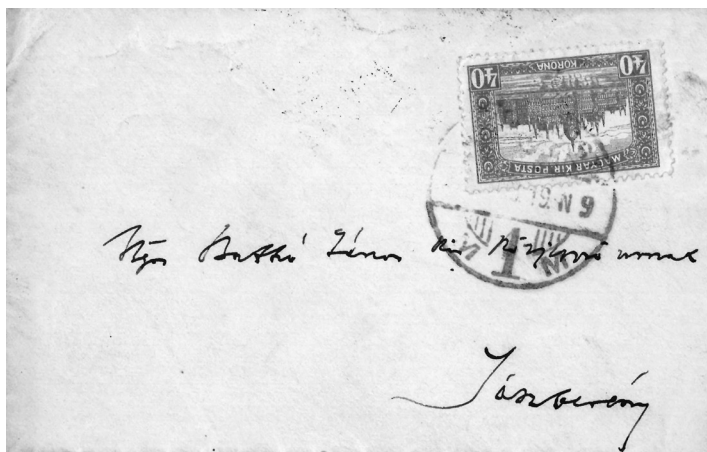 40 40
KORONA
MAGYAR KIR POSTA
1
Batkó János kir. Közjegyző urnak
Jászberény